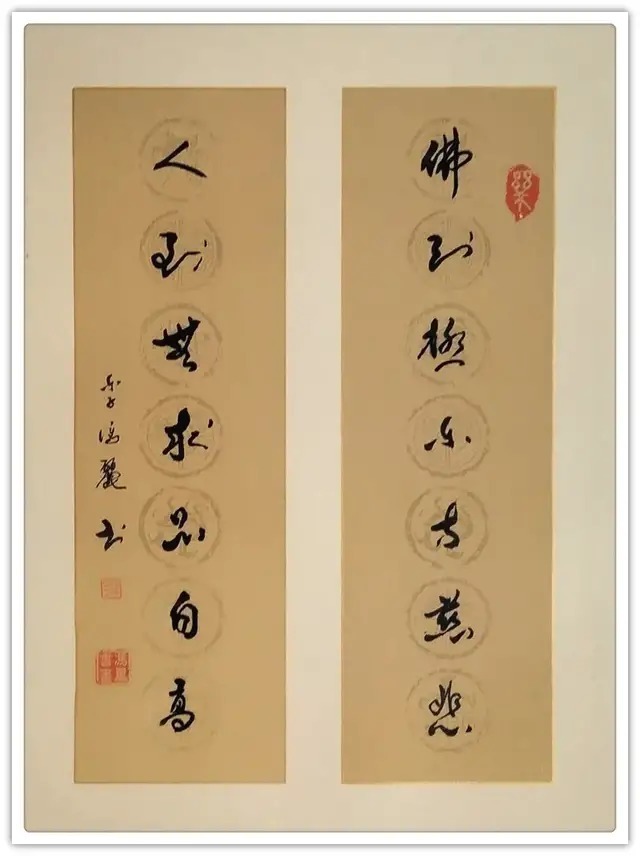 佛到極乐方慈悲
人到無求品自高
冯麗书